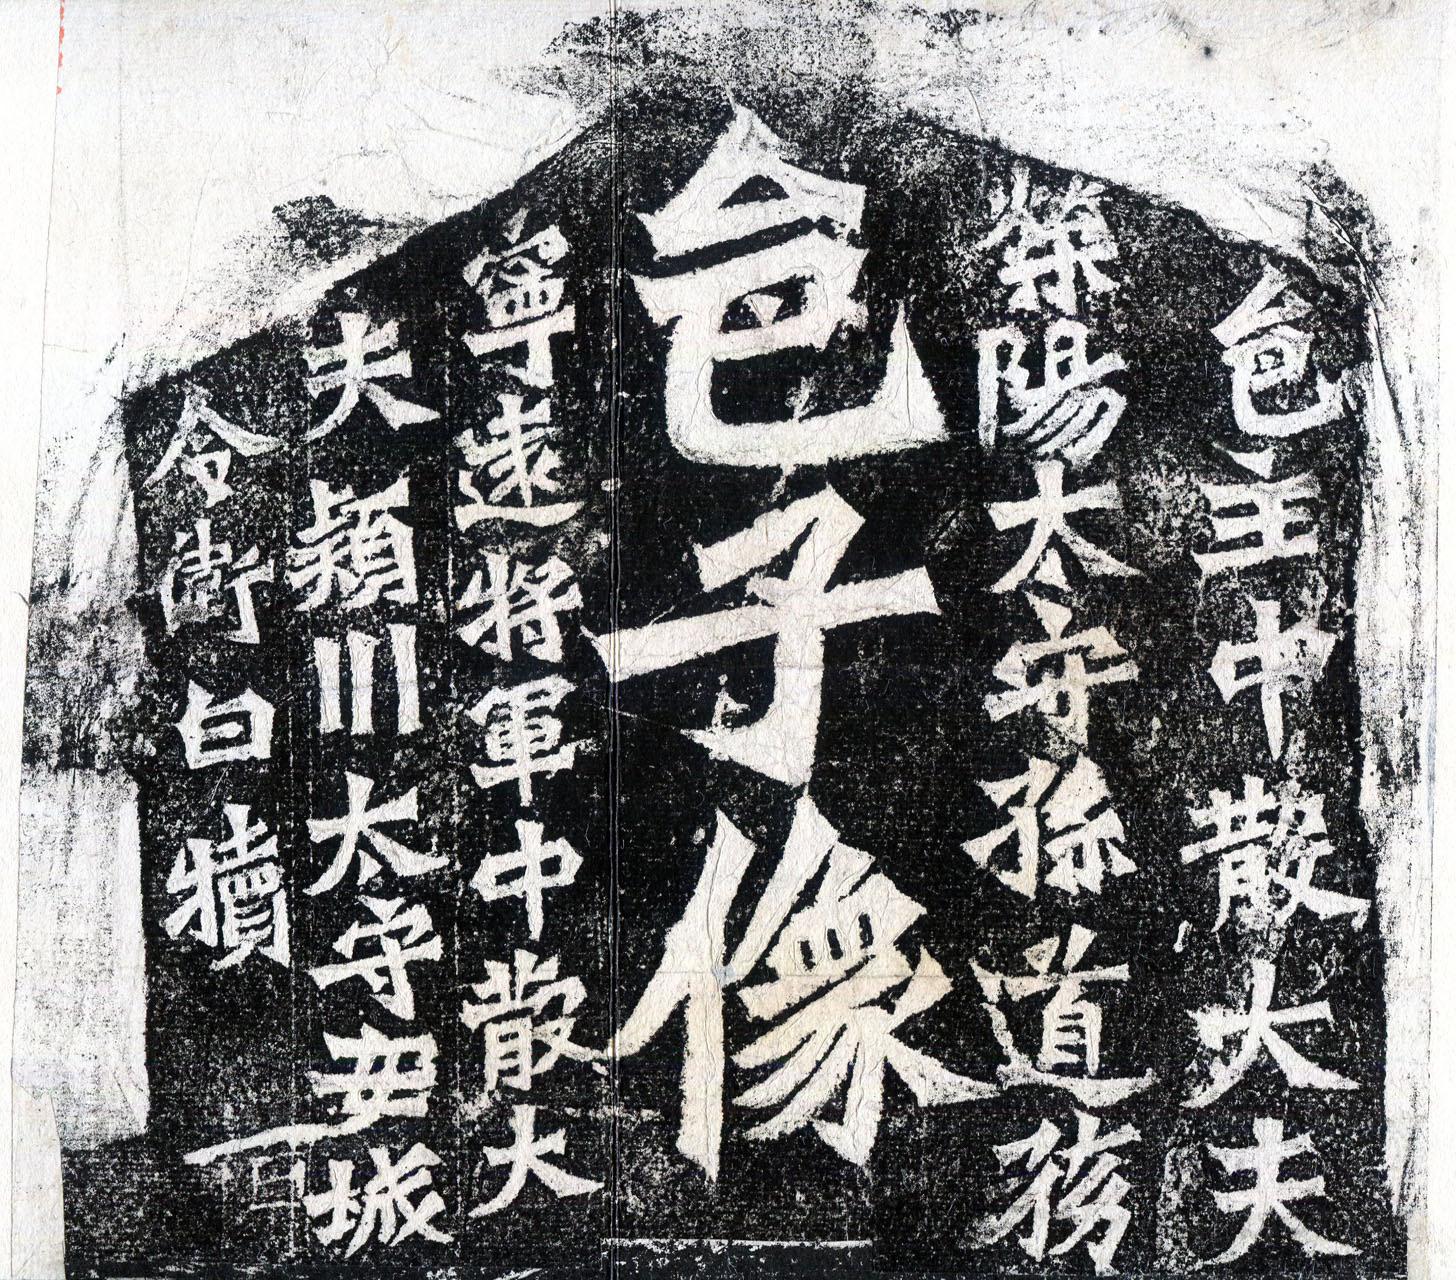 邑主中散大夫
荥陽太守孫道務
邑子像
寧遠將軍中散大
夫潁川太守安城
令衛白犢